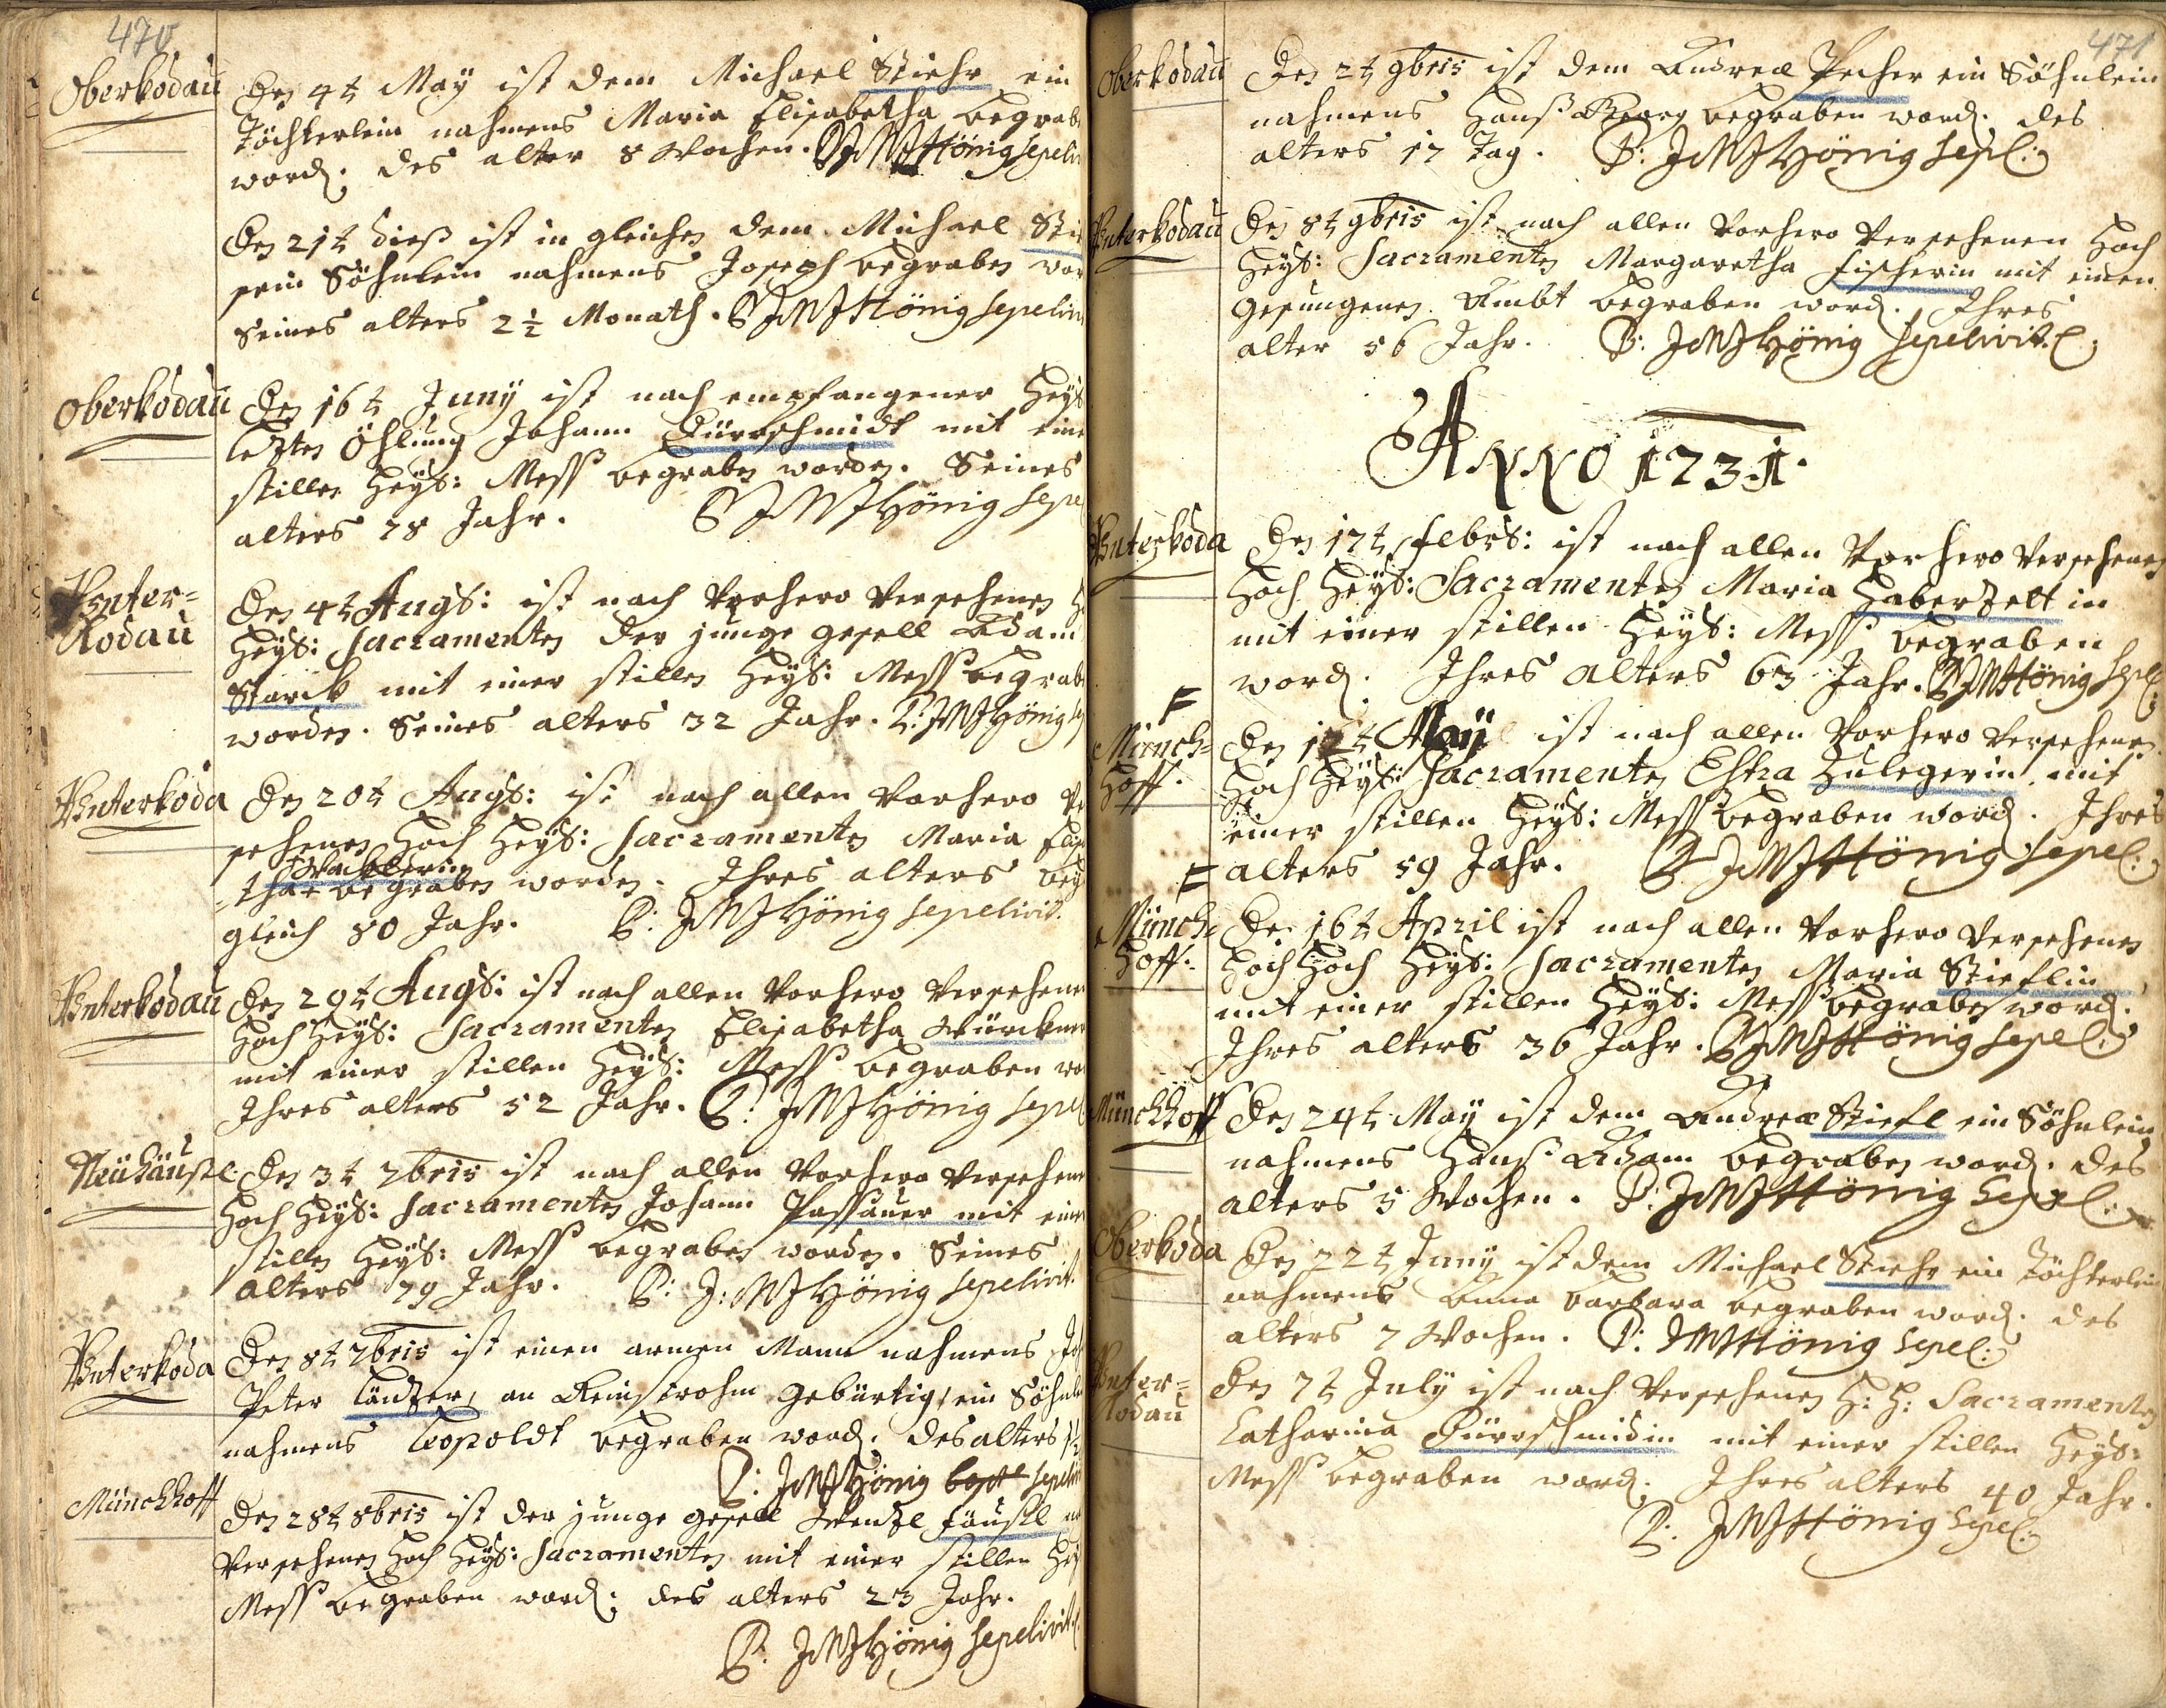 470
Oberkodau
Den 4t May ist dem Michael Stiehr ein
Töchterlein nahmens Maria Elisabetha begrab
word. des alter 8 Wochen. P JWJHönig sepeliv
Den 21t dieß ist in gleichen dem Michael
sein Söhnlein nahmens Joseph begraben
Seines alters 2½ Monath. P JWJHönig sepelivi
Oberkodau
Den 16t Juny ist nach empfangener Heyl
letzten Öhlung Johann Dürrschmidt mit eine
stillen Heyl: Mess begraben worden. Seines
alters 78 Jahr. P JWJHönig sepe
Vnter=
Kodau
Den 4t Augs: ist nach vorhero versehenen
Heyl: Sacramenten der junge gesell Adam
Starck mit einer stillen Heyl: Mess begrab
worden. Seines alters 32 Jahr. P: JWJHönig
Vnterkoda
Den 20t Augs: ist nach allen vorhero
sehenen Hoch Heyl: Sacramenten Maria
Wachlerin
=tha begraben worden. Ihres alters
gleich 80 Jahr. P: JWJHönig sepelivit.
Vnterkodau
Den 29t Augs: ist nach allen vorhero versehene
Hoch Heyl: Sacramenten Elisabetha
mit einer stillen Heyl: Mess begraben wo
Ihres alters 52 Jahr. P: JWJHönig sepel
Neühäusl:
Den 3t 7bris ist nach allen vorhero versehene
Hoch Heyl: Sacramenten Johann Passauer mit eine
stillen Heyl: Mess begraben worden. Seines
alters 79 Jahr. P: J:WJHönig sepelivit.
Vnterkoda
Den 8t 7bris ist einen armen Mann nahmens
Peter Täntzer, an gebürtig, ein Söhnle
nahmens Leopoldt begraben word. des alters
P: JWJHönig sepelivi
Münchhoff
Den 28t 8bris ist der junge gesell Wentzl Fäustl
versehenen Hoch Heyl: Sacramenten mit einer stillen Hey
Mess begraben word. des alters 23 Jahr.
P: JWJHönig sepelivit.
471
Oberkodau
Den 2t 9bris ist dem Andreæ Pecher ein Söhnlein
nahmens Hanß Georg begraben word. des
alters 17 Tag. P: JWJHönig sepel:
Vnterkodau
Den 8t 9bris ist nach allen vorhero versehenen Hoch
Heyl: Sacramenten Margaretha Fischerin mit einen
gesungenen Ambt begraben word. Ihres
alter 56 Jahr. P: JWJHönig sepelivit.
ANNO 1731.
Vnterkoda
Den 17t febrs: ist nach allen vorhero versehenen
Hoch Heyl: Sacramenten Maria Haberzelt in
mit einer stillen Heyl: Mess begraben
word. Ihres alters 63 Jahr. P JWHönig sepel:
=
Münch=
Hoff.
Den 12t May ist nach allen vorhero versehenen
Hoch Heyl: Sacramenten Estra Zulegerin mit
einer stillen Heyl: Mess begraben word. Ihres
= alters 59 Jahr. P JWJHönig sepel:
Münch=
Hoff:
Den 16t April ist nach allen vorhero versehenen
Hoch Hoch Heyl: Sacramenten Maria Stieflin
mit einer stillen Heyl: Mess begraben word.
Ihres alters 36 Jahr. P JWJHönig sepel:
Münchhoff
Den 24t May ist dem Andreæ Stiefl ein Söhnlein
nahmens Hanß Adam begraben word. des
alters 5 Wochen. P: JWJHönig sepel:
Oberkoda
Den 22t Juny ist dem Michael Stiehr ein Töchterlein
nahmens Anna Barbara begraben word. des
alters 7 Wochen. P: JWHönig sepel:
Vnter=
Kodau
Den 7t July ist nach versehenen H: H: Sacramenten
Catharina Dürrschmidin mit einer stillen Heyl:
Mess begraben word. Ihres alters 40 Jahr.
P: JWJHönig sepel: